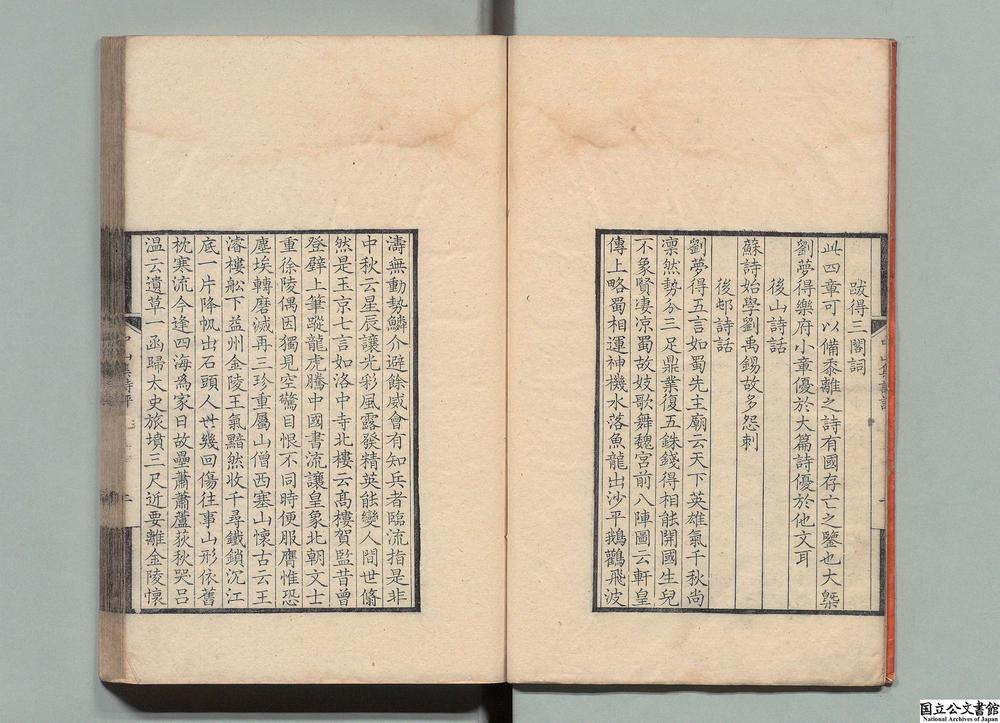 跋得三閣詞
此四章可以備黍離之詩有國存亡之鑒也大槩
劉夢得樂府小章優於大篇詩優於他文耳
後山詩話
蘇詩始學劉禹錫故多怨刺
後邨詩話
劉夢得五言如蜀先主廟云天下英雄氣千秋尚
凛然勢分三足鼎業復五銖錢得相能開國生兒
不象賢凄凉蜀故妓歌舞魏宮前八陣圖云軒皇
傳上略蜀相運神機水落魚龍出沙平鵝鸛飛波
濤無動勢鱗介避餘威會有知兵者臨流指是非
中秋云星辰讓光彩風露發精英能變人間世翛
然是玉京七言如洛中寺北樓云高樓賀監昔曾
登壁上筆蹤龍虎騰中國書流讓皇象北朝文士
重徐陵偶因獨見空驚目恨不同時便服膺惟恐
塵埃轉磨滅再三珍重屬山僧西塞山懷古云王
濬樓舩下益州金陵王氣黯然收千尋鐵鎖沉江
底一片降帆出石頭人世幾回傷往事山形依舊
枕寒流今逢四海爲家日故壘蕭蕭蘆荻秋哭呂
温云遺草一函歸太史旅墳三尺近要離金陵懷
国立公文書館
National Archives of Japan